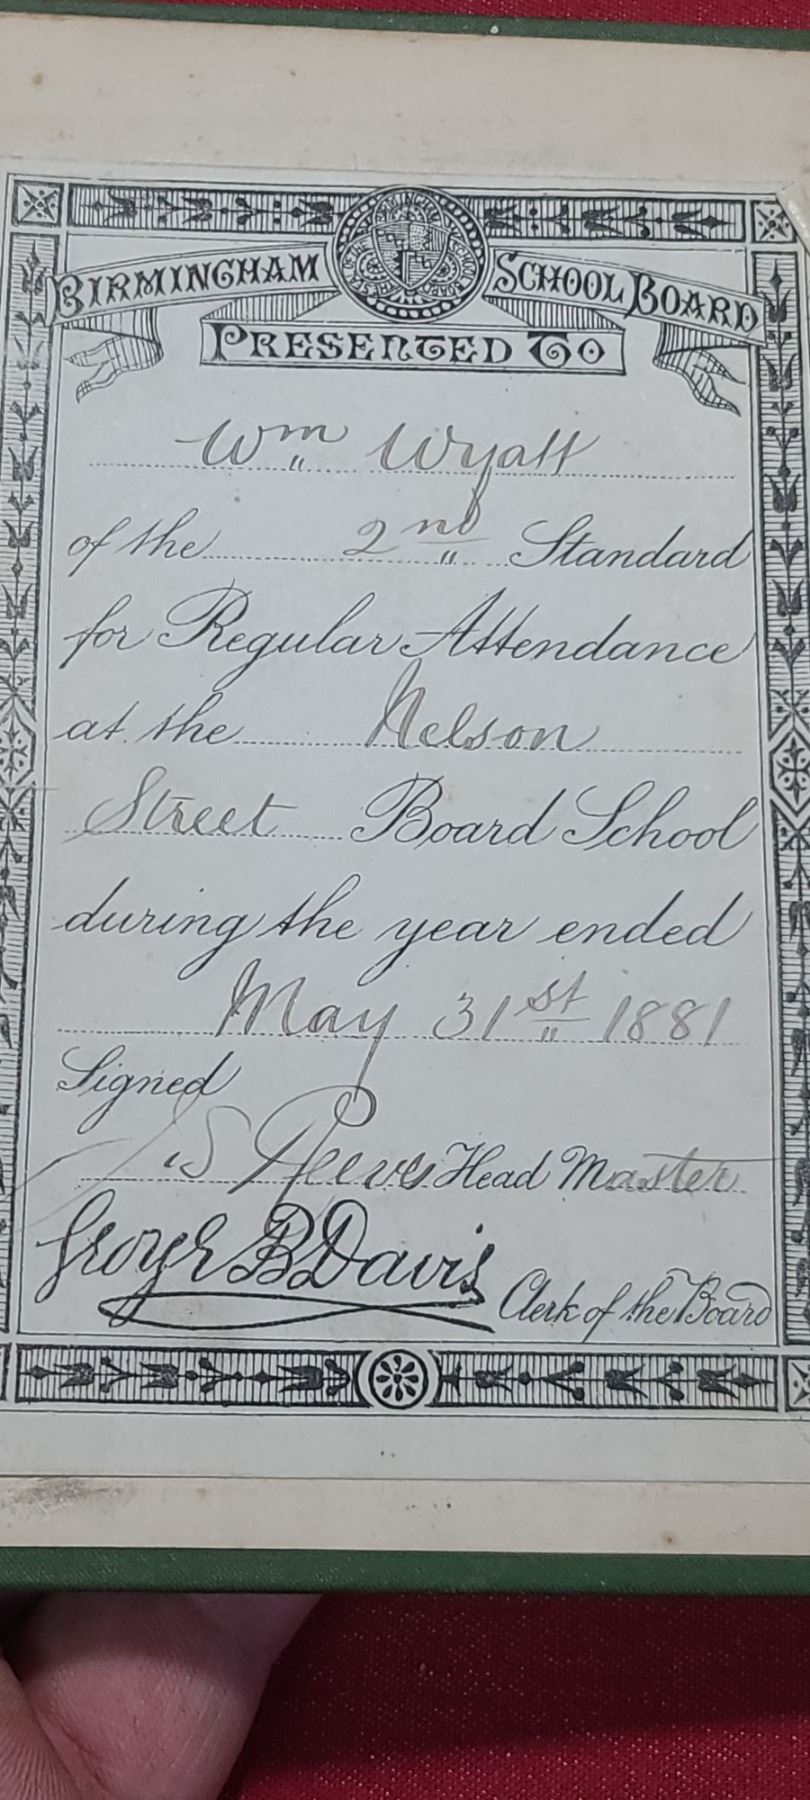 BIRMINGHAM SCHOOL BOARD
PRESENTED TO
Wm Wyatt
of the 2nd Standard
for Regular Attendance
at the Nelson
Street Board School
during the year ended
May 31st 1881
Signed
S Reeves Head Master
George B Davis Clerk of the Board